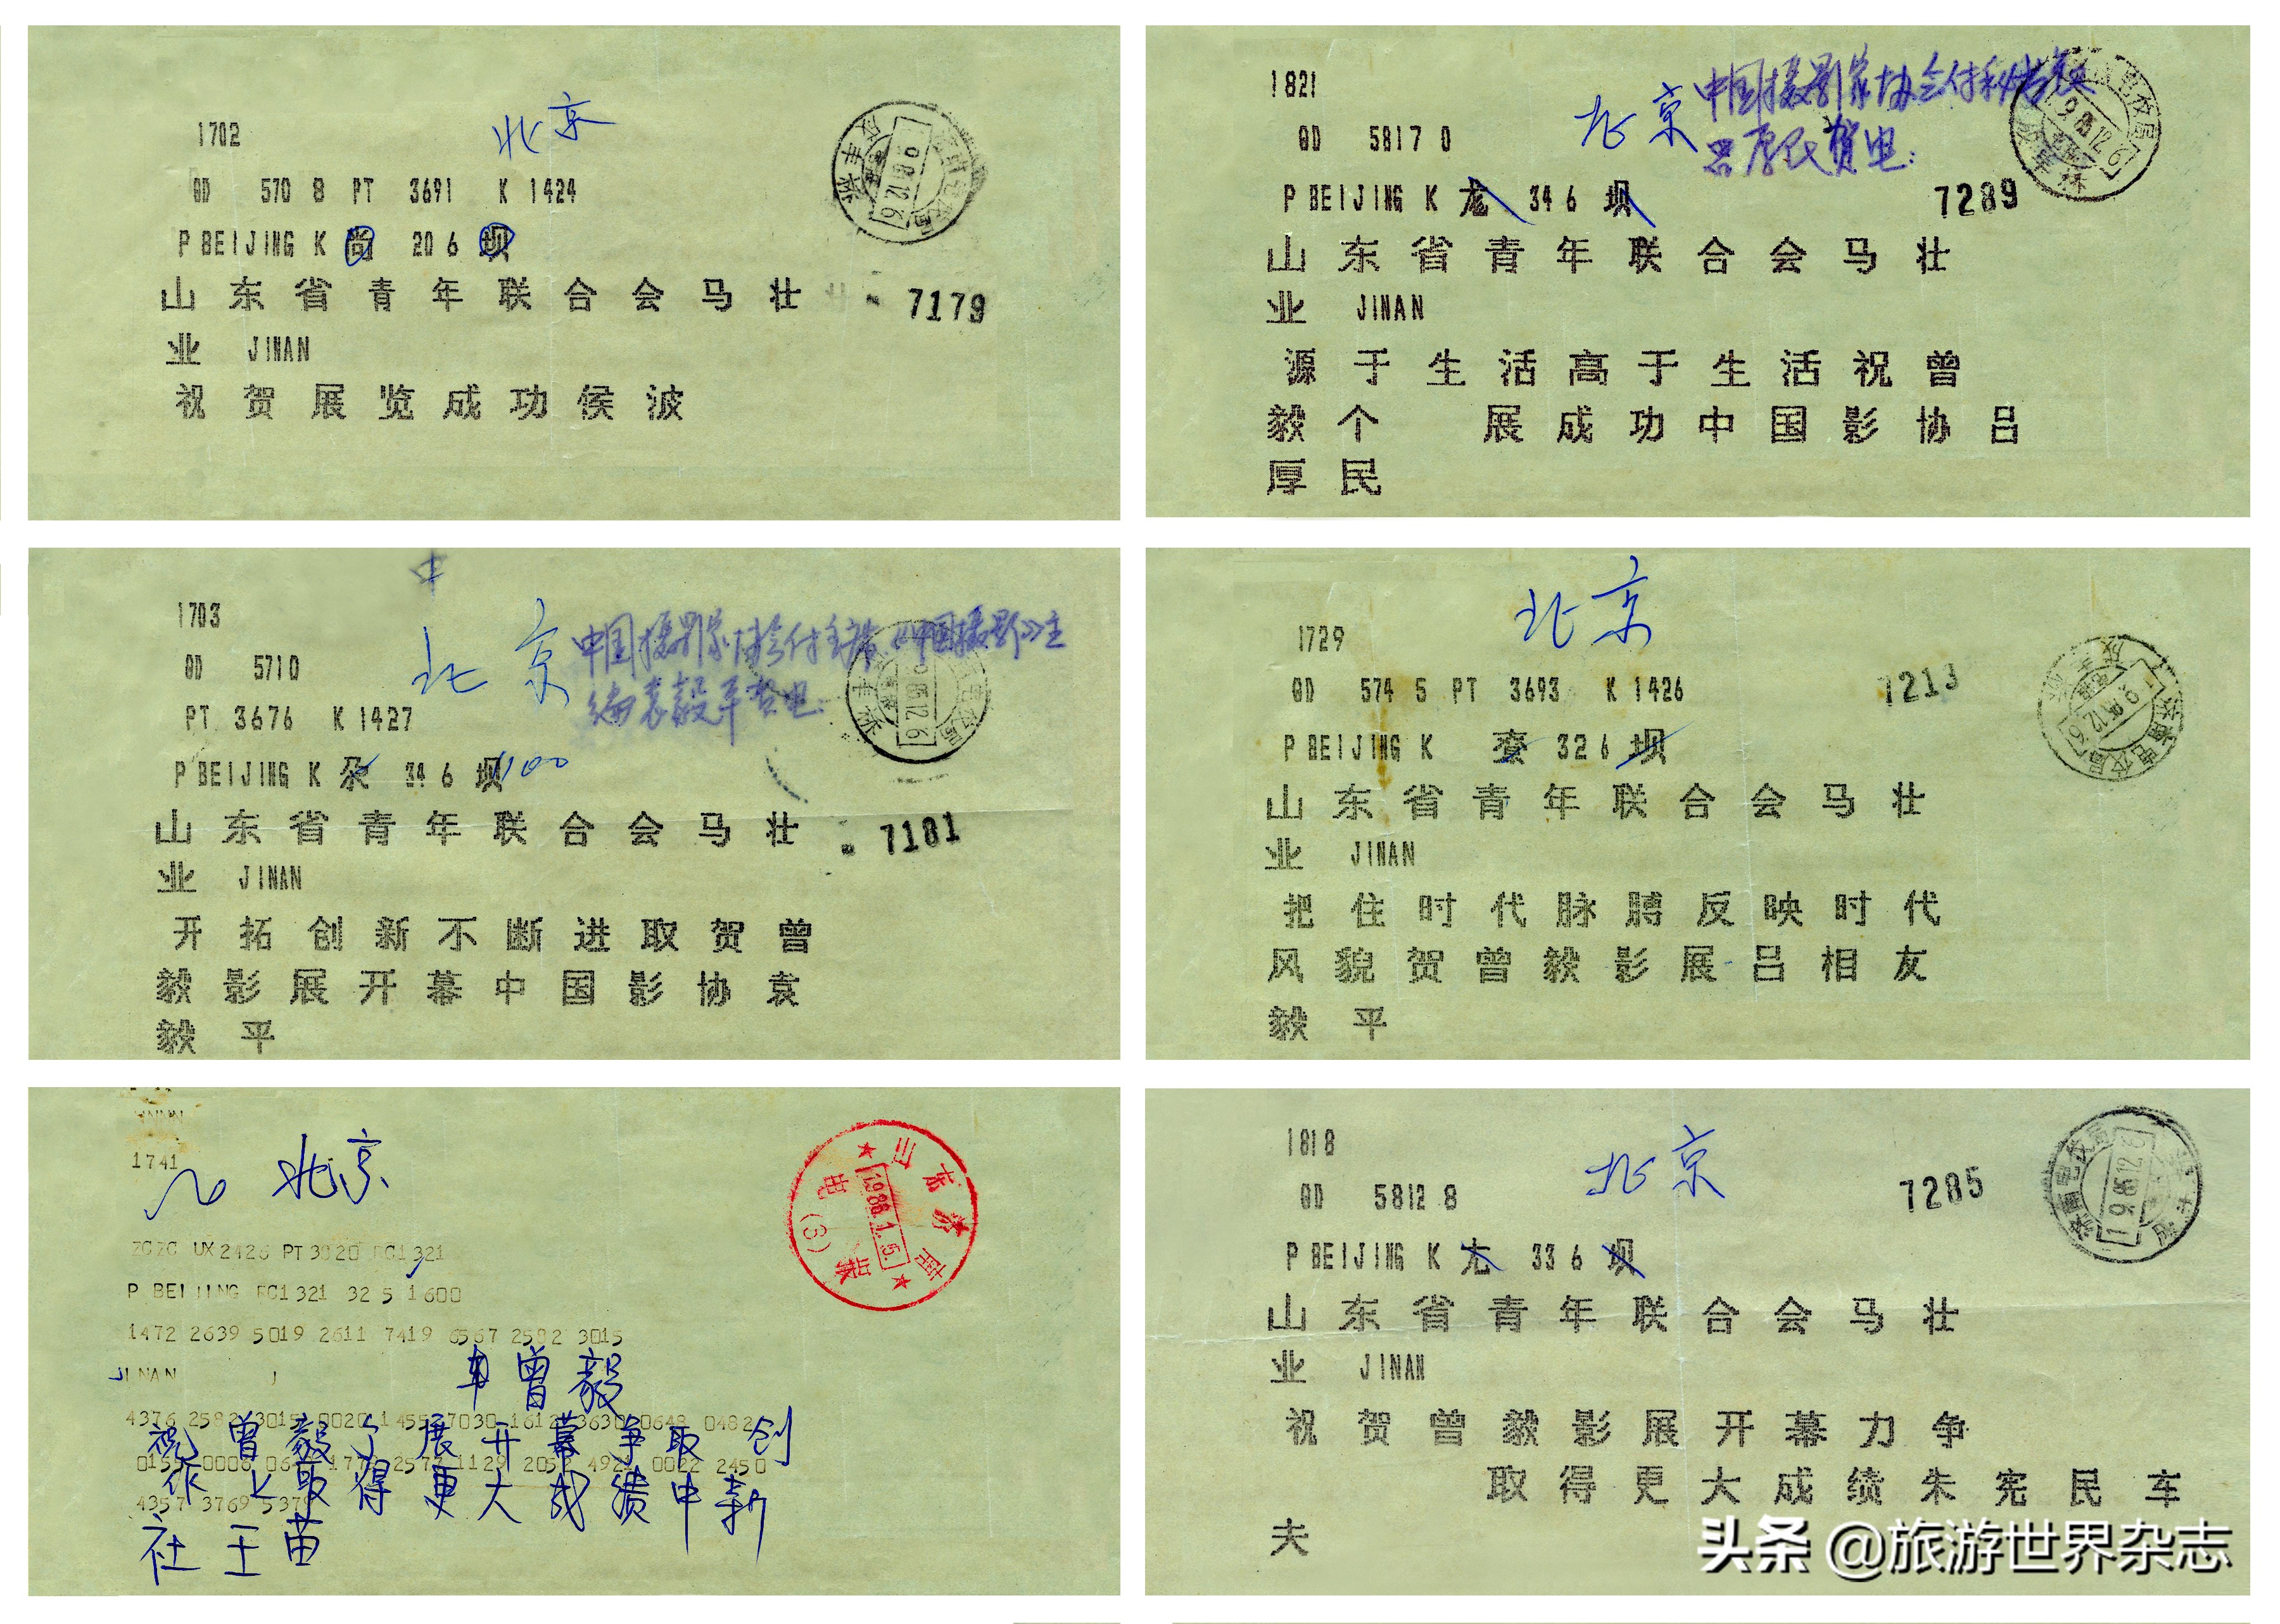 1702
北京
QD 570 8 PT 3691 K 1424
P BEIJING K 尚 20 6 坝
山东省青年联合会马壮
7179
业 JINAN
祝贺展览成功侯波
1821
北京
中国摄影家协会付秘书长
吕厚民贺电:
QD 5817 0
P BEIJING K 龙 34 6 坝
7289
山东省青年联合会马壮
业 JINAN
源于生活高于生活祝曾
毅个 展成功中国影协吕
厚民
中
1703
北京
中国摄影家协会付主席《中国摄影》主
编袁毅平贺电:
QD 5710
PT 3676 K 1427
P BEIJING K 尕 34 6 坝 100
山东省青年联合会马壮
7181
业 JINAN
开拓创新不断进取贺曾
毅影展开幕中国影协袁
毅平
1729
北京
QD 574 5 PT 3693 K 1426
7213
P BEIJING K 32 6 坝
山东省青年联合会马壮
业 JINAN
把住时代脉膊反映时代
风貌贺曾毅影展吕相友
毅平
1741
北京
山东济南
电报
(3)
1986.1.5.
ZCZC UX2426 PT3020 RC1321
P BEIJING RC1321 32 5 1600
1472 2639 5019 2611 7419 6567 2582 3015
JINAN
曾毅
祝曾毅个展开幕争取创
作上取得更大成绩中新
社王苗
1818
北京
QD 5812 8
7285
P BEIJING K 尢 33 6 坝
山东省青年联合会马壮
业 JINAN
祝贺曾毅影展开幕力争
取得更大成绩朱宪民车
夫
头条 @旅游世界杂志